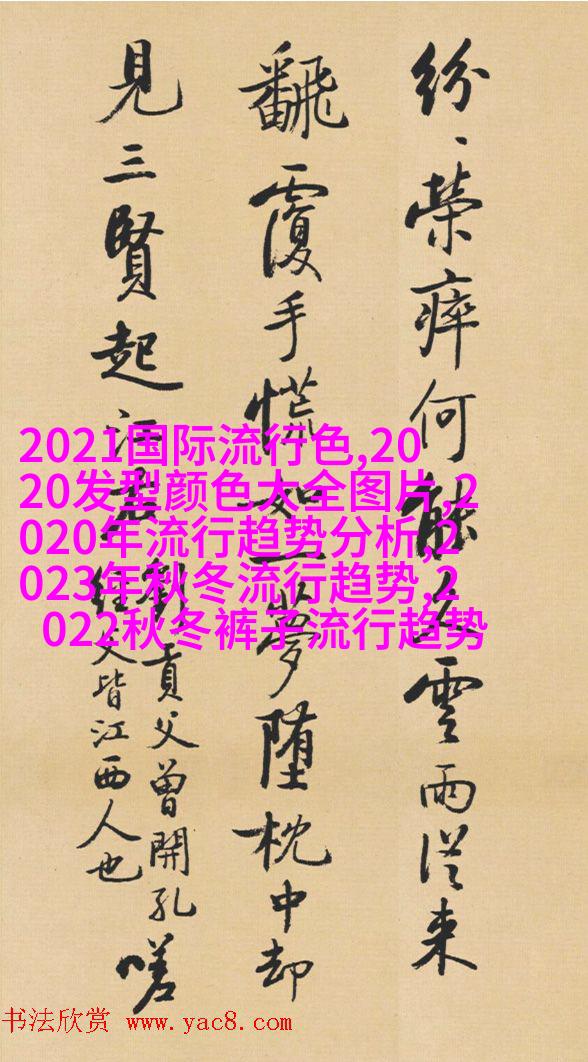 紛、榮瘁何能久雲雨從來
翻覆手慌如一夢墮枕中却
見三賢起江
劉貢父曾開孔
經父皆江西人也
嗟
2021国际流行色,20
20发型颜色大全图片,2
020年流行趋势分析,2
023年秋冬流行趋势,2
022秋冬裤子流行趋势
书法欣赏 www.yac8.com